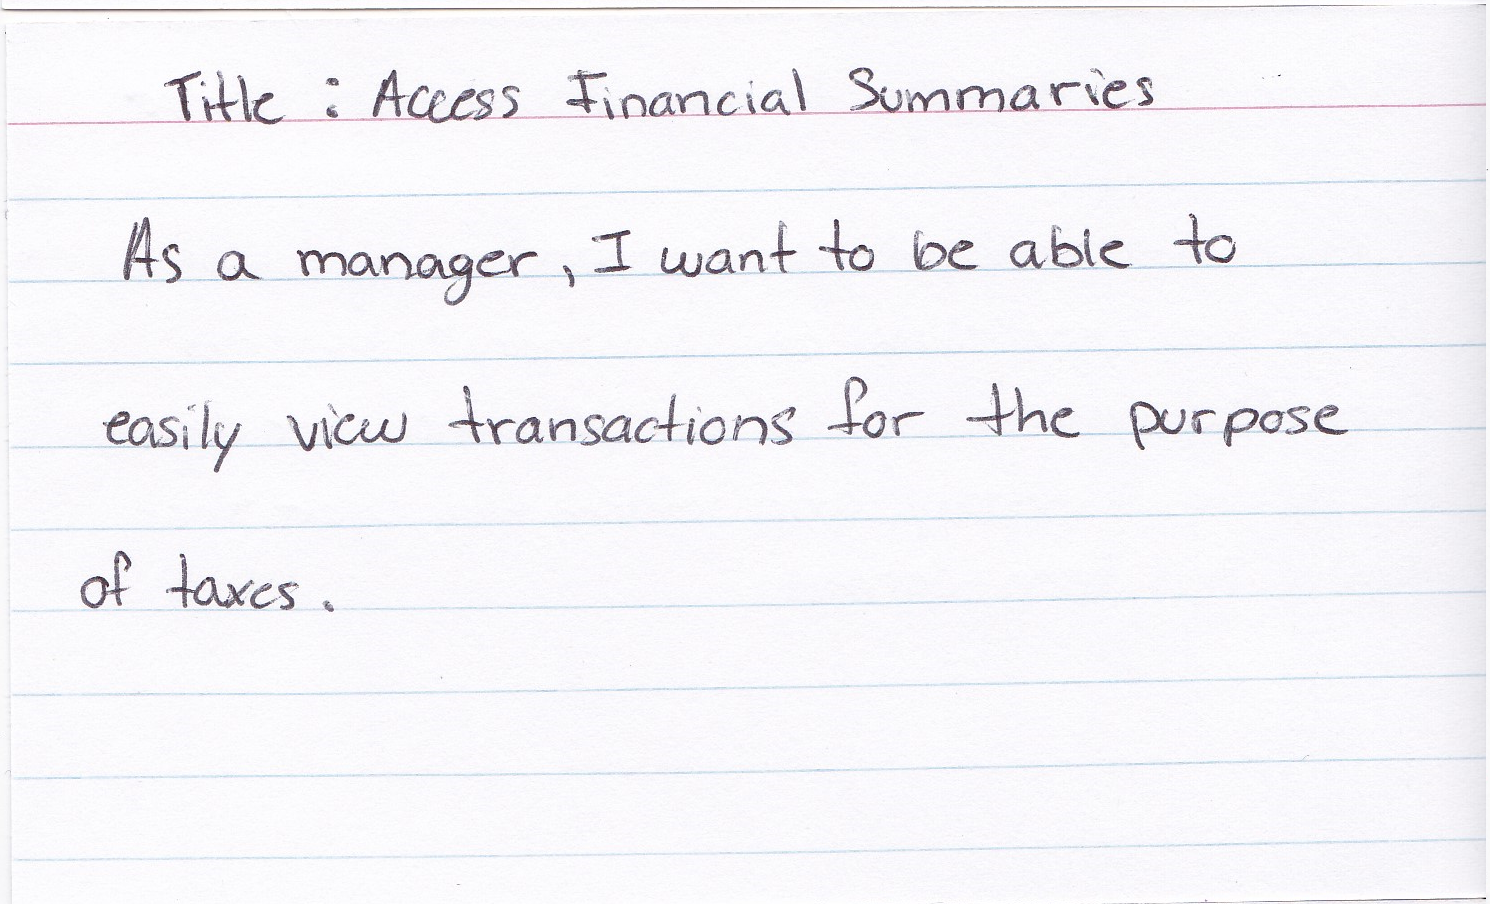 Title : Access Financial Summaries
As a manager, I want to be able to
easily view transactions for the purpose
of taxes.